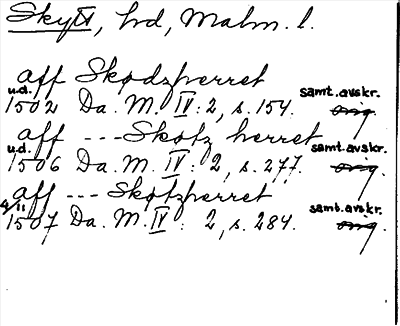 Skytt, hd, Malm. l.
aff Skodzherret
u.d. 1502 Da. M. IV: 2, s. 154. samt. avskr. orig.
aff --- Skotz herret
u.d. 1506 Da. M. IV: 2, s. 277. samt. avskr. orig.
aff --- Skotzherret
4/11 1507 Da. M. IV: 2, s. 284. samt. avskr. orig.